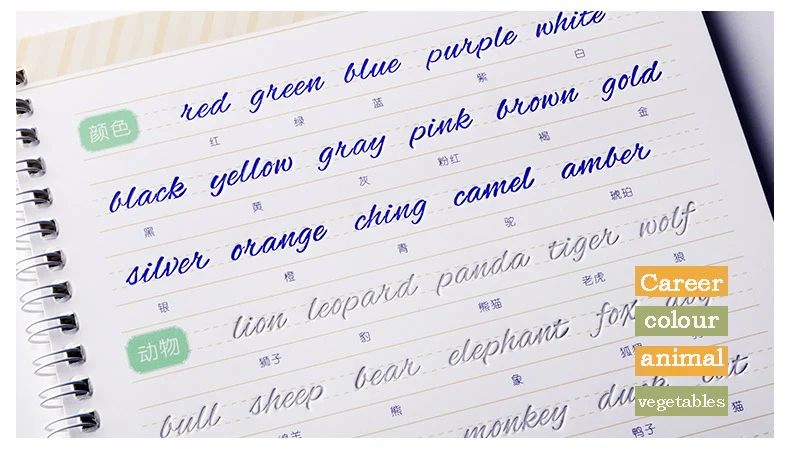 red green blue purple white
红 绿 蓝 紫 白
颜色
black yellow gray pink brown gold
黑 黄 灰 粉红 褐 金
silver orange ching camel amber
银 橙 青 驼 琥珀
lion leopard panda tiger wolf
狮子 豹 熊猫 老虎 狼
动物
bull sheep bear elephant fox
熊 象
monkey
鸭子 猫
Career
colour
animal
vegetables